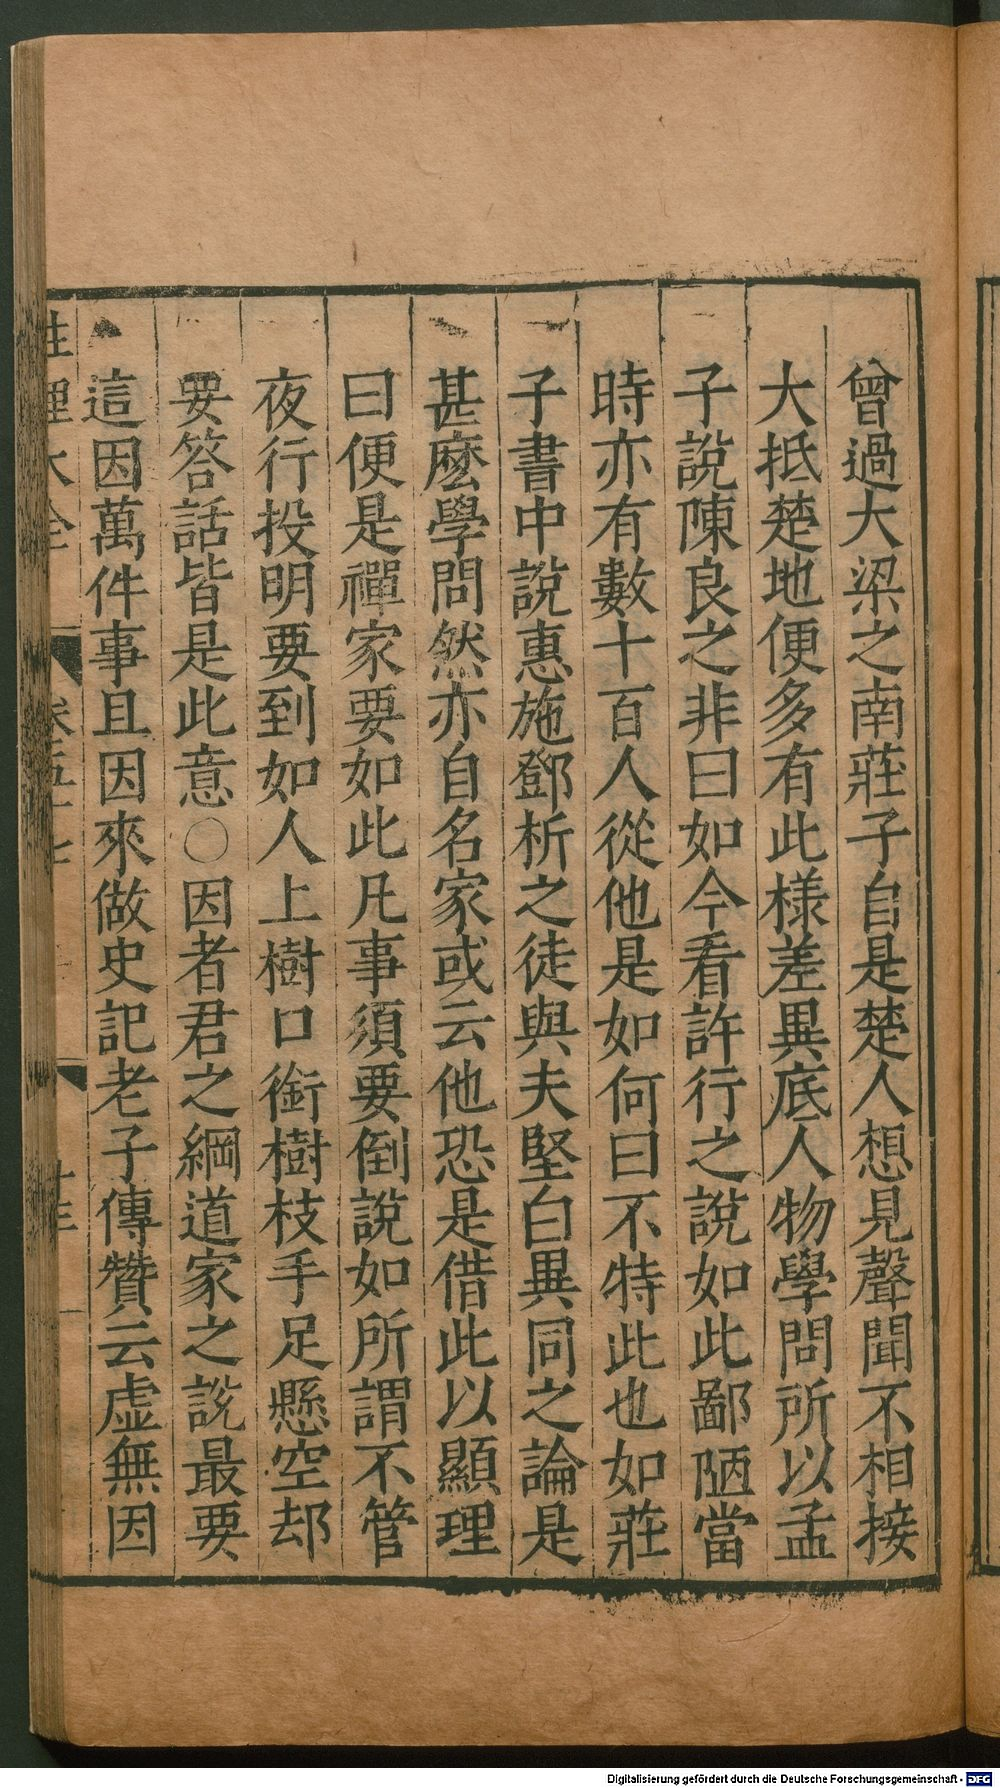 曾過大梁之南莊子自是楚人想見聲聞不相接
大抵楚地便多有此樣差異底人物學問所以孟
子說陳良之非曰如今看許行之說如此鄙陋當
時亦有數十百人從他是如何曰不特此也如莊
子書中說惠施鄧析之徒與夫堅白異同之論是
甚麽學問然亦自名家或云他恐是借此以顯理
曰便是禪家要如此凡事須要倒說如所謂不管
夜行投明要到如人上樹口銜樹枝手足懸空却
要答話皆是此意○因者君之綱道家之說最要
這因萬件事且因來做史記老子傳贊云虛無因
性理大全
卷五十七
十三
Digitalisierung gefördert durch die Deutsche Forschungsgemeinschaft - DFG